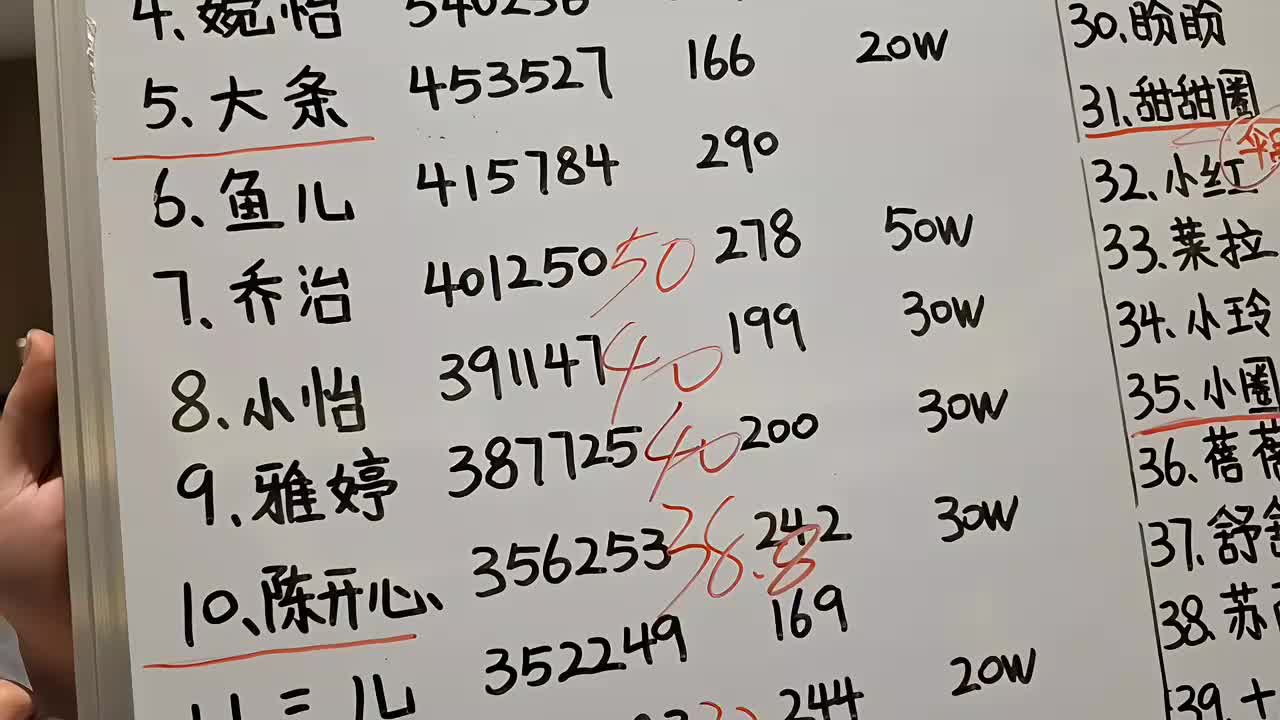 4、婉怡 540236
5、大条 453527 166 20W
6、鱼儿 415784 290
7、乔治 401250 50 278 50W
8、小怡 391147 40 199 30W
9、雅婷 387725 40 200 30W
10、陈开心、 356253 36.8 242 30W
11 三儿 352249 169
244 20W
30、盼盼
31、甜甜圈
32、小红
33、莱拉
34、小玲
35、小圈
36、蓓蓓
37、舒舒
38、苏
39、十